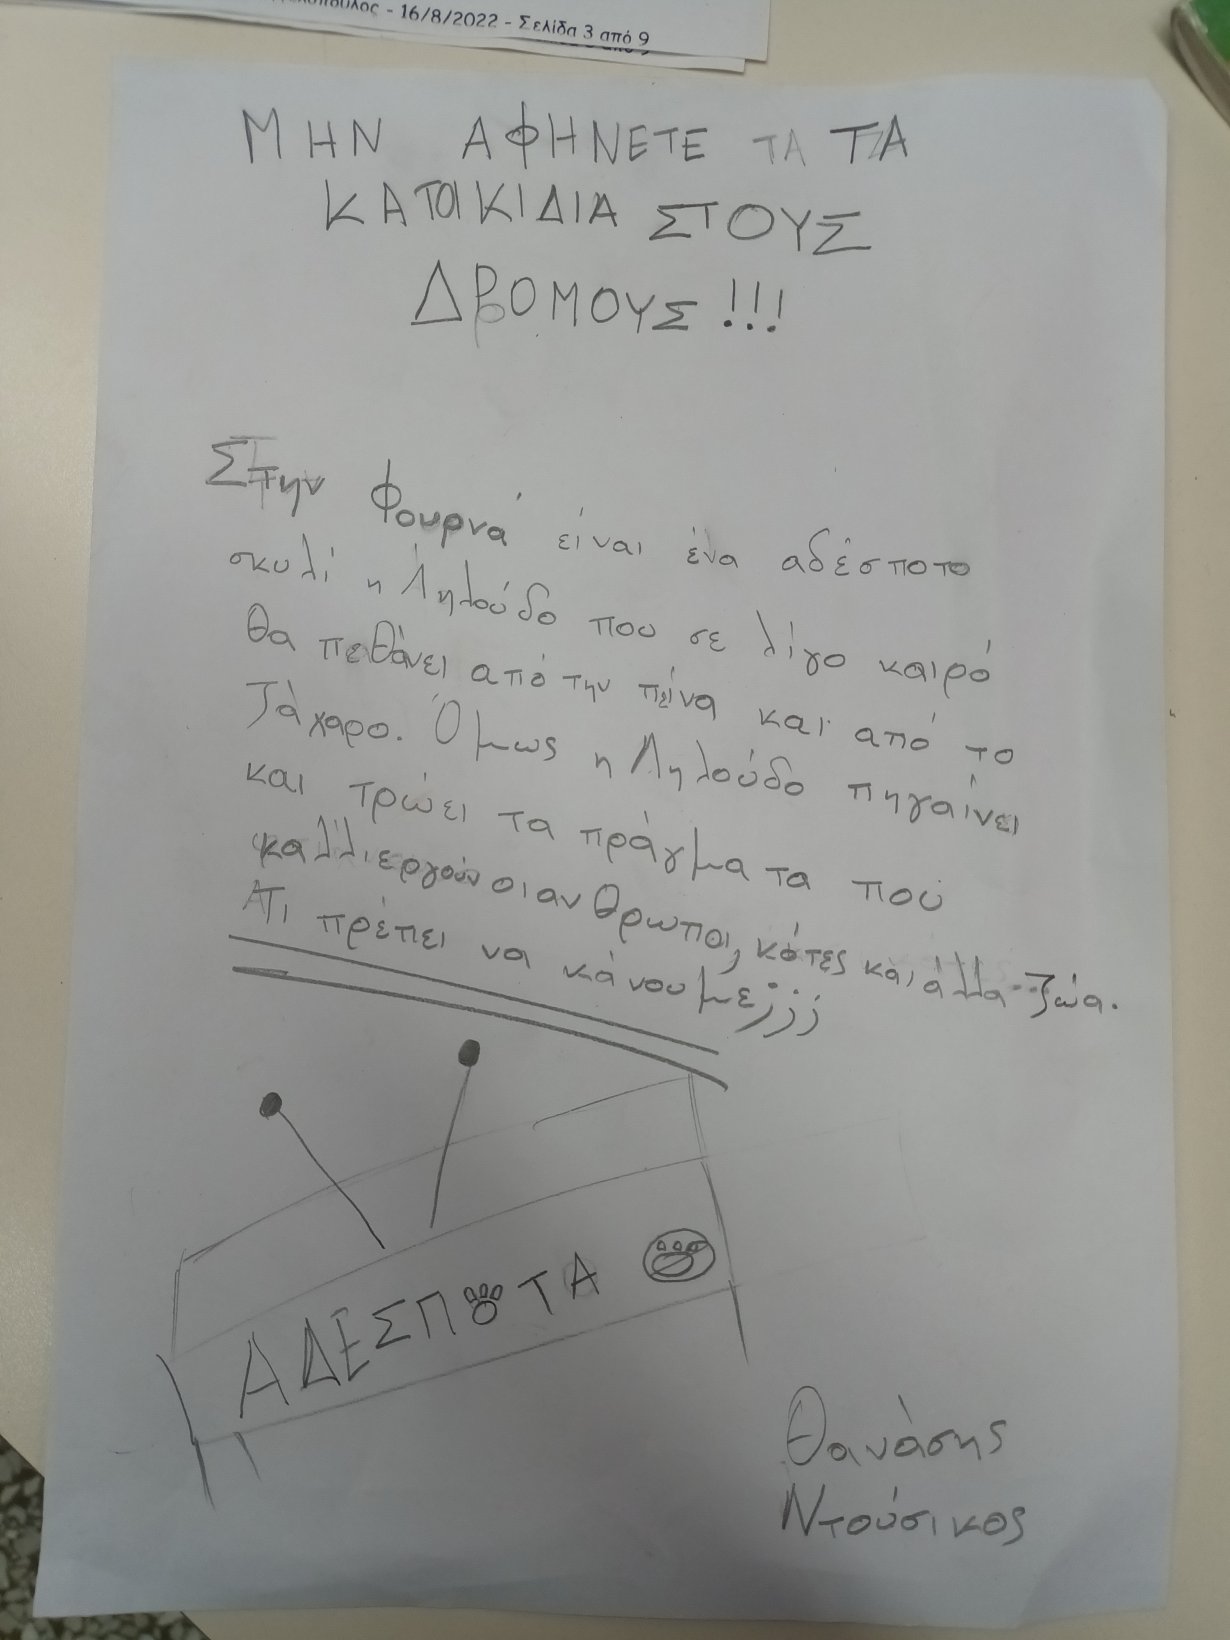 - 16/8/2022 - Σελίδα 3 από 9
ΜΗΝ ΑΦΗΝΕΤΕ ΤΑ ΤΑ
ΚΑΤΟΙΚΙΔΙΑ ΣΤΟΥΣ
ΔΡΟΜΟΥΣ!!!
Στην Φουρνά είναι ένα αδέσποτο
σκυλί η Ληλούδο που σε λίγο καιρό
θα πεθάνει από την πείνα και από το
Τάχαρο. Όμως η Ληλούδο πηγαίνει
και τρώει τα πράγματα πού
καλλιεργούν οι ανθρωποι, κότες και άλλα ζώα.
Τι πρέπει να κάνουμε;;;
ΑΔΕΣΠΟΤΑ
Θανάσης
Ντούσικος